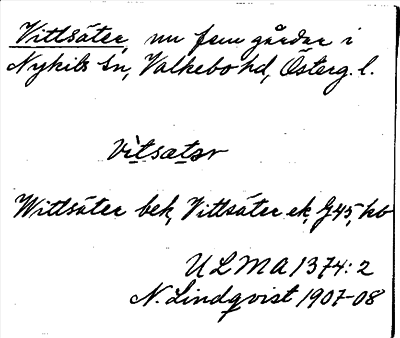 Vittsäter, nu fem gårdar i
Nykils sn, Valkebo hd, Österg. l.
vitsætər
Wittsäter bek, Vittsäter ek, G45, kb
ULMA 1374:2
N. Lindqvist 1907-08